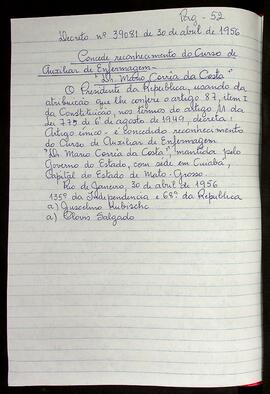 Pag - 52
Decreto nº 39081 de 30 de abril de 1956
Concede reconhecimento do Curso de
Auxiliar de Enfermagem -
"Dr. Mário Corrêa da Costa"
O Presidente da Republica, usando da
atribuição que lhe confere o artigo 87, item I
da Constituição, nos termos do artigo 11 da
Lei 775 de 6 de agosto de 1949, decreta:
Artigo único - é concedido reconhecimento
do Curso de Auxiliar de Enfermagem
"Dr Mario Corrêa da Costa", mantida pelo
Governo do Estado, com sede em Cuiabá,
Capital do Estado de Mato - Grosso.
Rio de Janeiro, 30 de abril de 1956
135º da Independencia e 68º da Republica
a) Juscelino Kubischc
a) Clovis Salgado